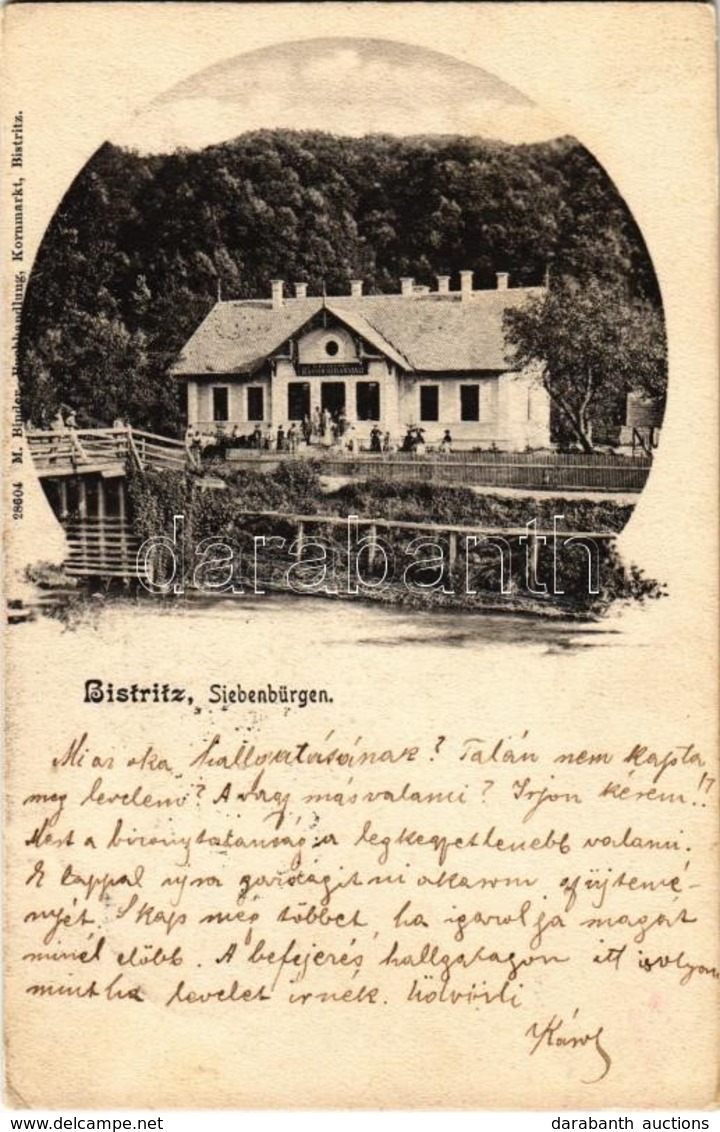 28604 M. Binder, Buchhandlung, Kornmarkt, Bistritz.
darabanth
Bistritz, Siebenbürgen.
Mi az oka hallgatásának? Talán nem kapta
meg levelem? Avagy más valami? Irjon kérem!!
Mert a bizonytalanság a legkegyetlenebb valami.
E lappal ujra gazdagitni akarom gyüjtemé-
nyét. Kap még többet, ha igazolja magát
minél előbb. A befejezés hallgatagon itt
mintha levelet irnék. Üdvözli
Károly
darabanth auctions